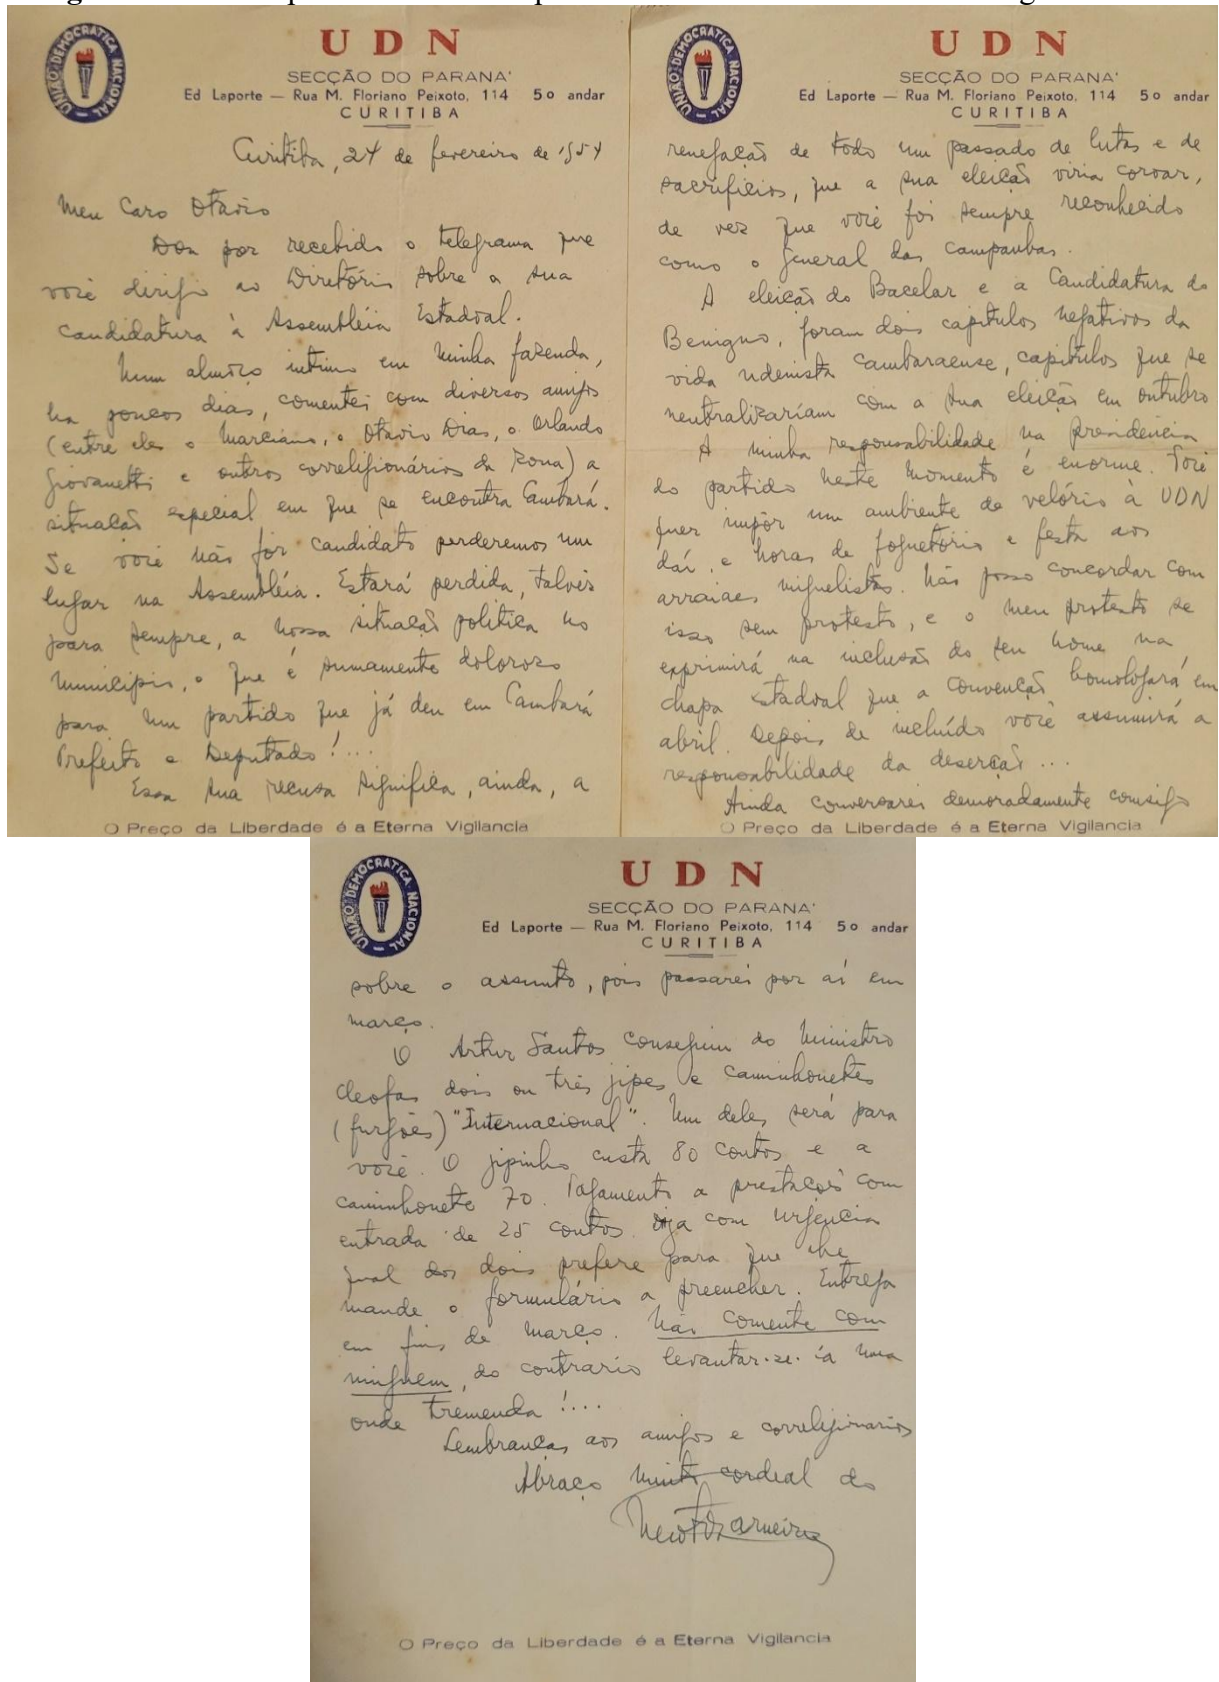 UNIÃO DEMOCRATICA NACIONAL
UDN
SECÇÃO DO PARANA'
Ed Laporte — Rua M. Floriano Peixoto, 114 5o andar
CURITIBA
Curitiba, 24 de fevereiro de 1954
Meu Caro Otavio
Dou por recebido o telegrama que
você dirigiu ao Diretório sobre a sua
candidatura à Assembléia Estadoal.
Num almôço intimo em minha fazenda,
ha poucos dias, comentei com diversos amigos
(entre eles o Marciano, o Otavio Dias, o Orlando
Giovanetti e outros correligionários da Zona) a
situação especial em que se encontra Cambará.
Se você não fôr candidato perderemos um
lugar na Assembléia. Estará perdida, talvês
para sempre, a nossa situação politica no
Municipio, o que é sumamente doloroso
para um partido que já deu em Cambará
Prefeito e Deputado!...
Essa sua recusa significa, ainda, a
O Preço da Liberdade é a Eterna Vigilancia
UNIÃO DEMOCRATICA NACIONAL
UDN
SECÇÃO DO PARANA'
Ed Laporte — Rua M. Floriano Peixoto, 114 5o andar
CURITIBA
renegação de todo um passado de lutas e de
sacrificios, que a sua eleição viria coroar,
de vez que você foi sempre reconhecido
como o general das campanhas.
A eleição do Bacelar e a Candidatura do
Benigno, foram dois capitulos negativos da
vida udenista cambaraense, capitulos que se
neutralizariam com a sua eleição em outubro
A minha responsabilidade na presidencia
do partido neste momento é enorme. Você
quer impôr um ambiente de velório à UDN
daí, e horas de foguetório e festa aos
arraiaes miguelistas. Não posso concordar com
isso sem protesto, e o meu protesto se
exprimirá na inclusão do seu nome na
chapa Estadoal que a Convenção homologará em
abril. Depois de incluído você assumirá a
responsabilidade da deserção...
Ainda conversarei demoradamente consigo
O Preço da Liberdade é a Eterna Vigilancia
UNIÃO DEMOCRATICA NACIONAL
UDN
SECÇÃO DO PARANA'
Ed Laporte — Rua M. Floriano Peixoto, 114 5o andar
CURITIBA
sobre o assunto, pois passarei por aí em
março.
O Artur Santos conseguiu do Ministro
Cleofas dois ou três jipes e caminhonetes
(furgões) "Internacional". Um deles será para
você. O jipinho custa 80 contos e a
caminhonete 70. Pagamento a prestações com
entrada de 25 contos. Diga com urgencia
qual dos dois prefere para que lhe
mande o formulário a preencher. Entrega
em fins de março. Não comente com
ninguem, do contrario levantar-se-ia uma
onde tremenda!...
Lembranças aos amigos e correligionarios
Abraço muito cordeal do